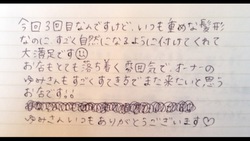 今回3回目なんですけど、いつも重めな髪形
なのに すごく自然になるように付けてくれて
大満足です☺
お店もとても落ち着く雰囲気で、オーナーの
ゆみさんもすごくすてきでまた来たいと思う
お店です。
ゆみさんいつもありがとうございます♡